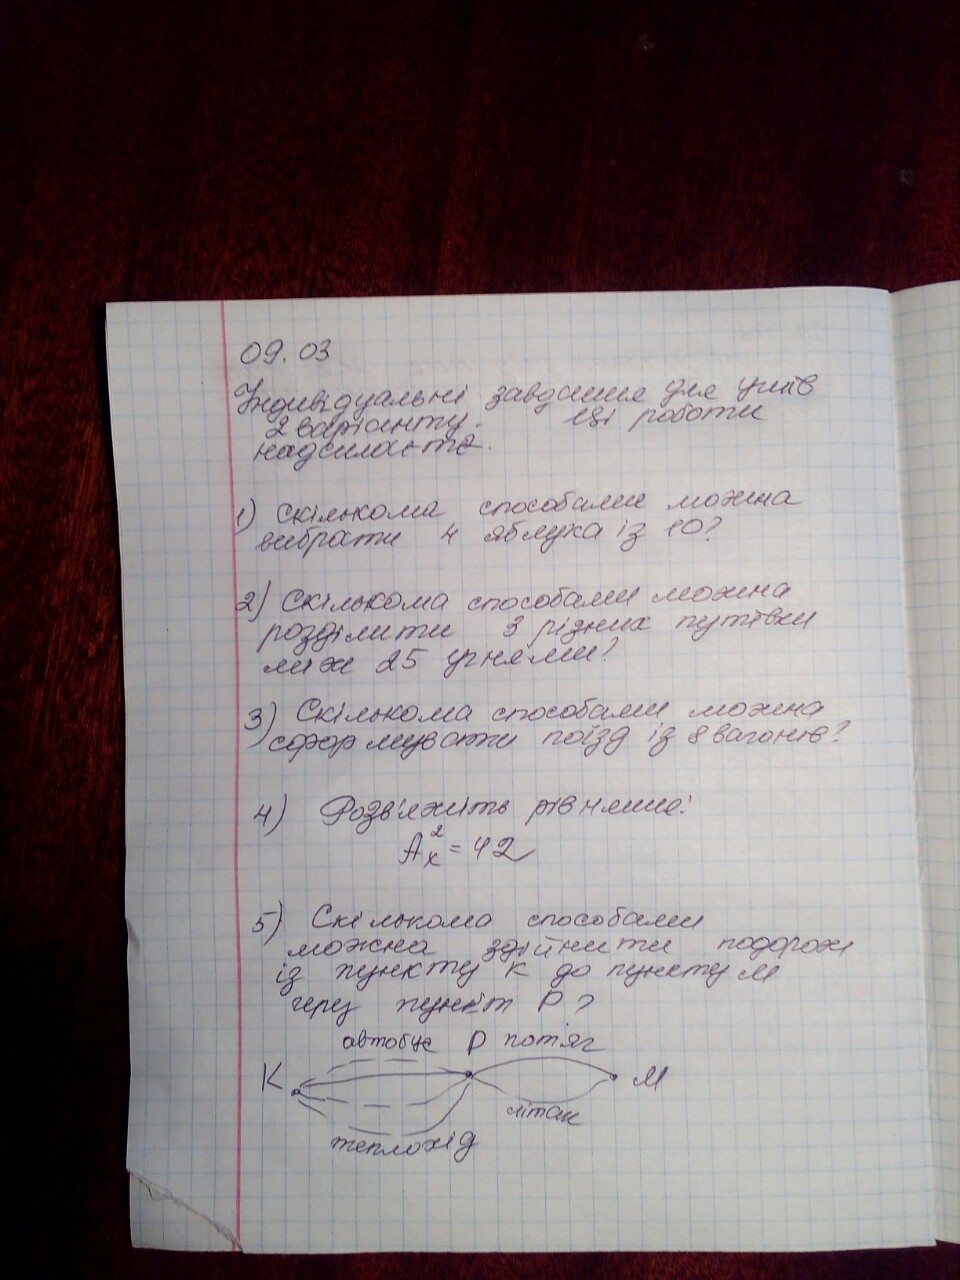 09.03
Індивідуальні завдання для учнів
2 варіанту. Ці роботи
надсилаєте.
1) Скількома способами можна
вибрати 4 яблука із 10?
2) Скількома способами можна
розділити 3 різних путівки
між 25 учнями?
3) Скількома способами можна
сформувати поїзд із 8 вагонів?
4) Розв'яжіть рівняння:
A²ₓ = 42
5) Скількома способами
можна здійнити подорож
із пункту К до пункту М
через пункт Р?
автобус Р потяг
К М
літак
теплохід